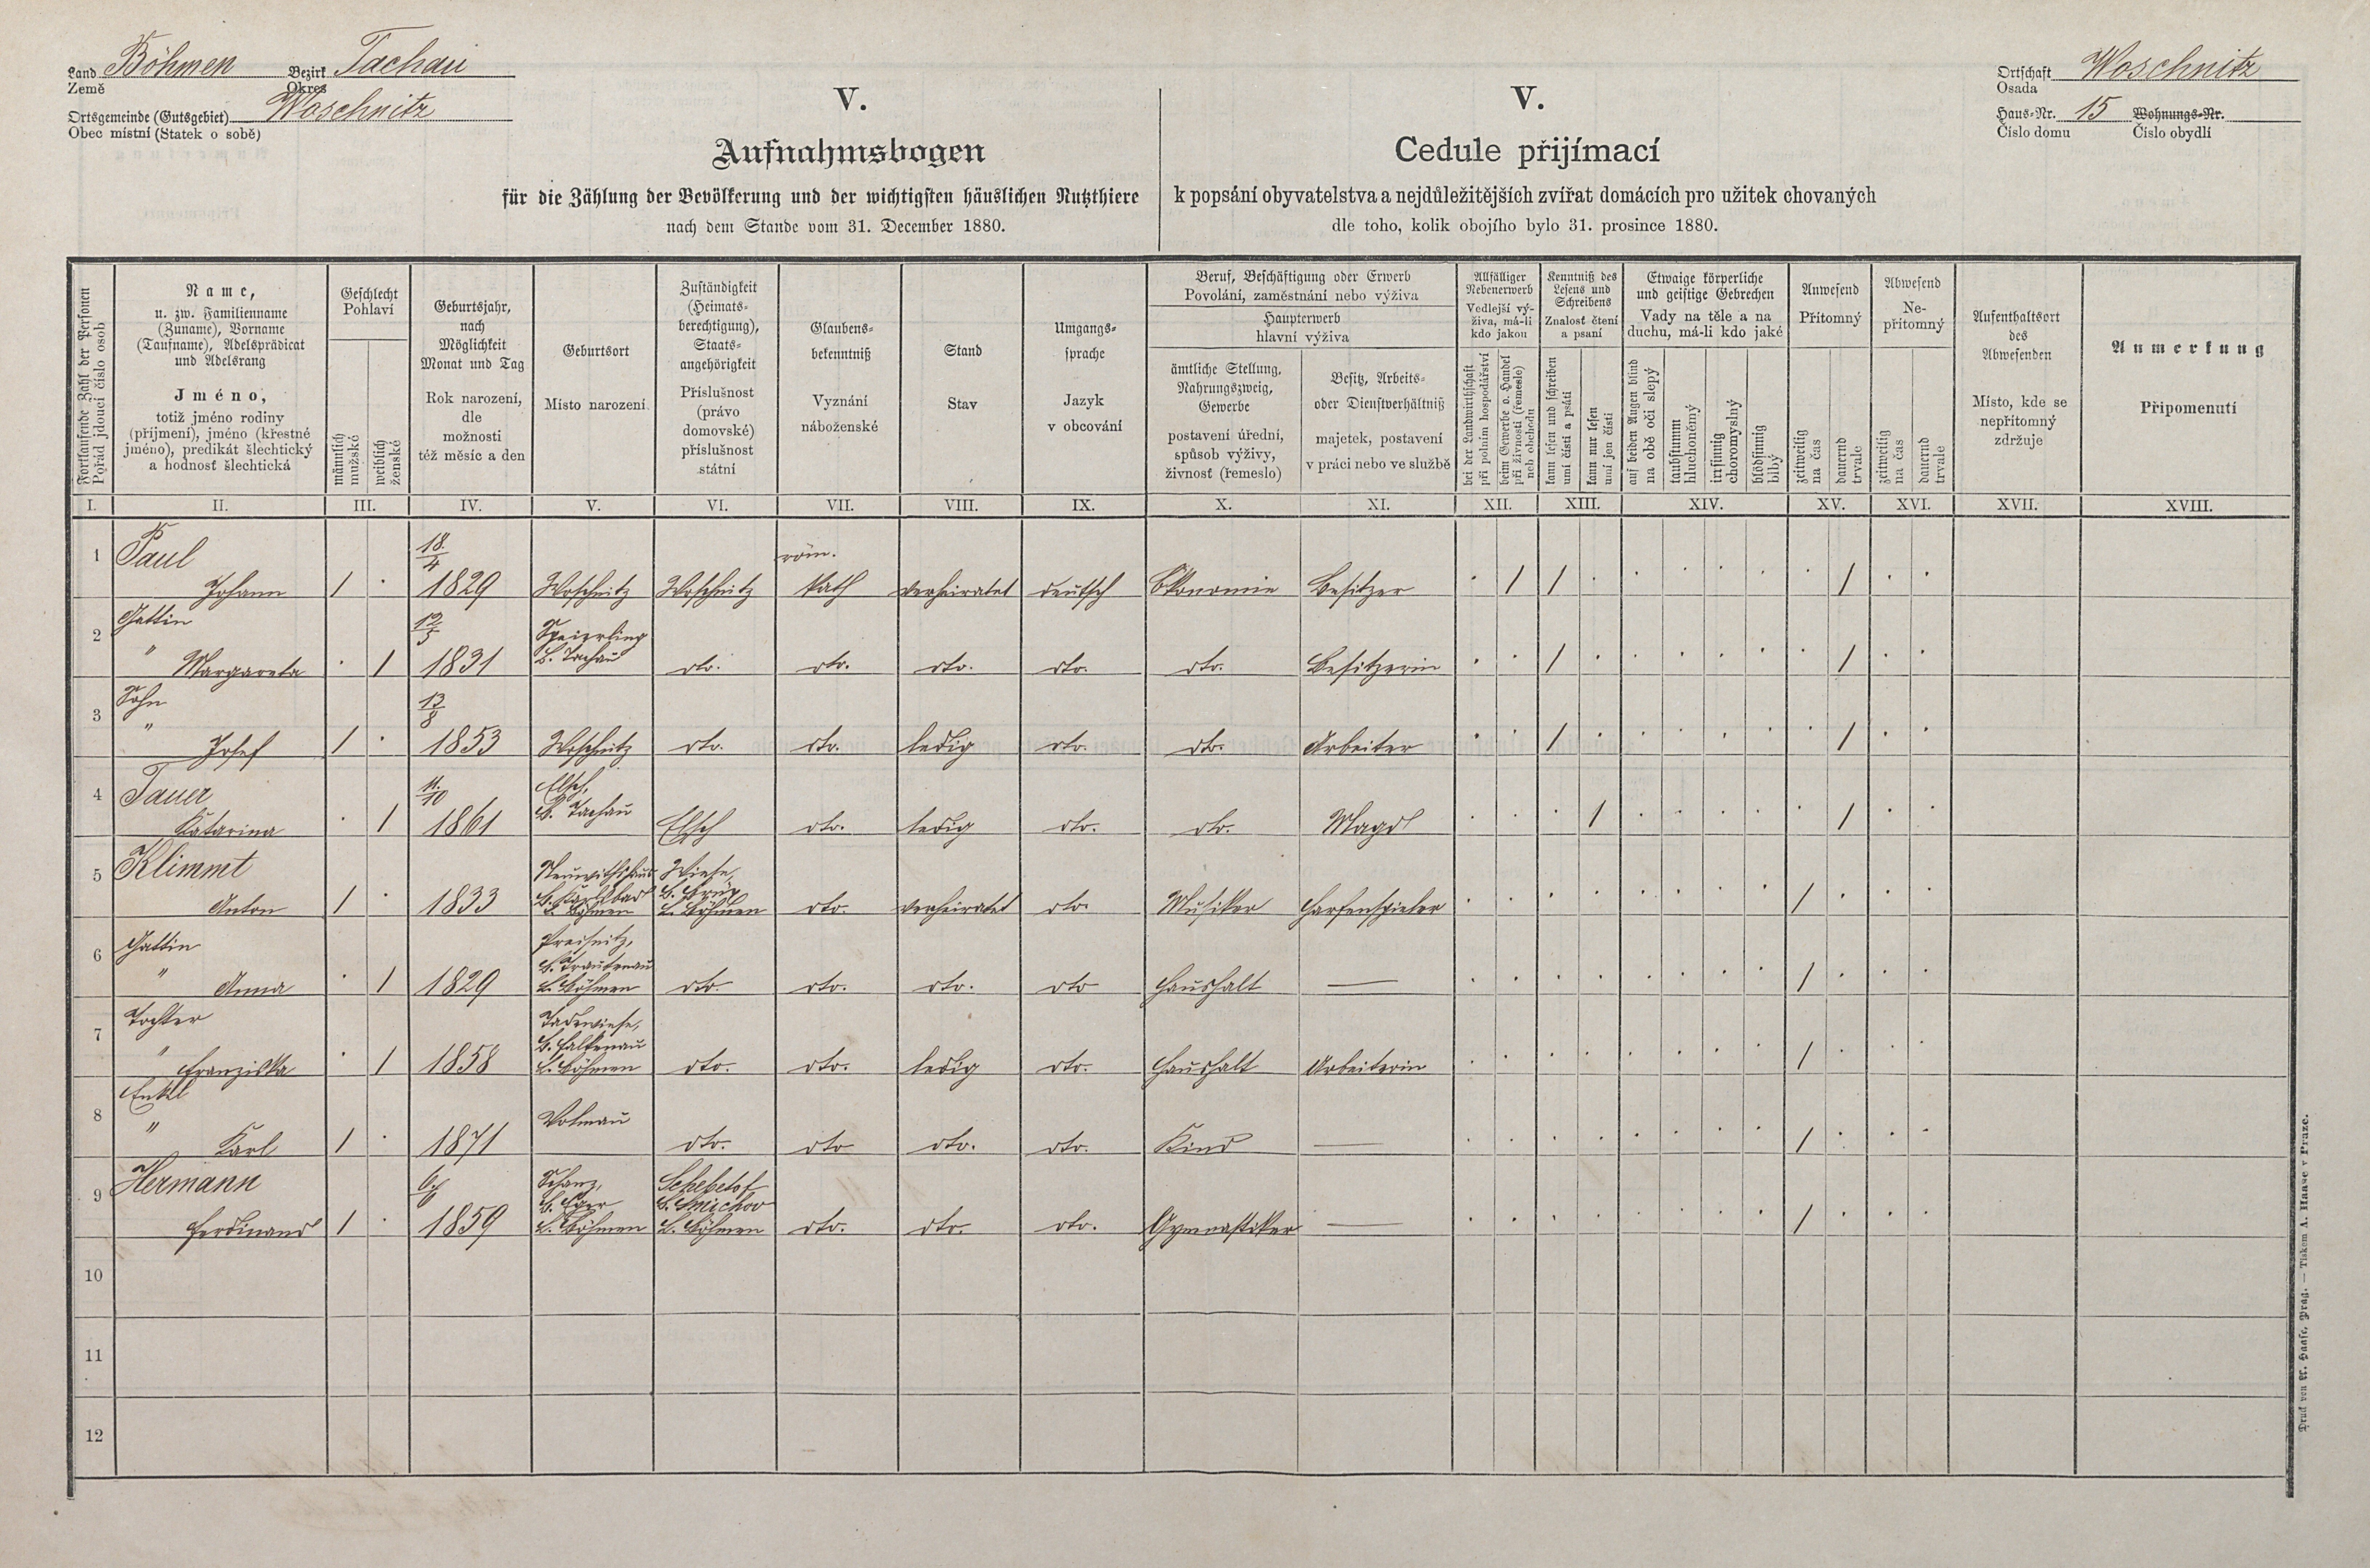 Land Böhmen Bezirk Tachau
Země Okres
Ortsgemeinde (Gutsgebiet) Woschnitz
Obec místní (Statek o sobě)
V.
Aufnahmsbogen
für die Zählung der Bevölkerung und der wichtigsten häuslichen Nutzthiere
nach dem Stande vom 31. December 1880.
V.
Cedule přijímací
k popsání obyvatelstva a nejdůležitějších zvířat domácích pro užitek chovaných
dle toho, kolik obojího bylo 31. prosince 1880.
Ortschaft Woschnitz
Osada
Haus-Nr. 15 Wohnungs-Nr.
Číslo domu Číslo obydlí
Fortlaufende Zahl der Personen
Pořád jdoucí číslo osob
Name,
u. zw. Familienname
(Zuname), Vorname
(Taufname), Adelsprädicat
und Adelsrang
Jméno,
totiž jméno rodiny
(příjmení), jméno (křestné
jméno), predikát šlechtický
a hodnosť šlechtická
Geschlecht
Pohlaví
männlich
mužské
weiblich
ženské
Geburtsjahr,
nach
Möglichkeit
Monat und Tag
Rok narození,
dle
možnosti
též měsíc a den
Geburtsort
Místo narození
Zuständigkeit
(Heimats-
berechtigung),
Staats-
angehörigkeit
Příslušnost
(právo
domovské)
příslušnost
státní
Glaubens-
bekenntniß
Vyznání
náboženské
Stand
Stav
Umgangs-
sprache
Jazyk
v obcování
Beruf, Beschäftigung oder Erwerb
Povolání, zaměstnání nebo výživa
Haupterwerb
hlavní výživa
ämtliche Stellung,
Nahrungszweig,
Gewerbe
postavení úřední,
spůsob výživy,
živnosť (řemeslo)
Besitz, Arbeits-
oder Dienstverhältniß
majetek, postavení
v práci nebo ve službě
Allfälliger
Nebenerwerb
Vedlejší vý-
živa, má-li
kdo jakou
bei der Landwirthschaft
při polním hospodářství
beim Gewerbe o. Handel
při živnosti (řemesle)
neb obchodu
Kenntniß des
Lesens und
Schreibens
Znalosť čtení
a psaní
kann lesen und schreiben
umí čísti a psáti
kann nur lesen
umí jen čísti
Etwaige körperliche
und geistige Gebrechen
Vady na těle a na
duchu, má-li kdo jaké
auf beiden Augen blind
na obě oči slepý
taubstumm
hluchoněmý
irrsinnig
choromyslný
blödsinnig
blbý
Anwesend
Přítomný
zeitweilig
na čas
dauernd
trvale
Abwesend
Ne-
přítomný
zeitweilig
na čas
dauernd
trvale
Aufenthaltsort
des
Abwesenden
Místo, kde se
nepřítomný
zdržuje
Anmerkung
Připomenutí
I. II. III. IV. V. VI. VII. VIII. IX. X. XI. XII. XIII. XIV. XV. XVI. XVII. XVIII.
1 Paul 18/4 röm.
Johann / · 1829 Woschnitz Woschnitz kath verheiratet deutsch Ökonomie Besitzer · / / · · · · · · / · ·
2 Gattin 12/5 Speierling
" Margareta · / 1831 B. Tachau dto. dto. dto. dto. dto. Besitzerin · · / · · · · · · / · ·
3 Sohn 13/8
" Josef / · 1853 Woschnitz dto. dto. ledig dto. dto. Arbeiter · · / · · · · · · / · ·
4 Tauer 11/10 Elsch,
B. Tachau
Katarina · / 1861 Elsch dto. ledig dto. dto. Magd · · · / · · · · · / · ·
5 Klimmt Wiese,
B. Karlsbad B. Brüx
Anton / · 1833 L. Böhmen L. Böhmen dto. verheiratet dto. Musiker Harfenspieler · · · · · · · · / · · ·
6 Gattin Preisnitz,
B. Trautenau
" Anna · / 1829 L. Böhmen dto. dto. dto. dto Haushalt — · · · · · · · · / · · ·
7 Tochter
B. Falkenau
" Franziska · / 1858 L. Böhmen dto. dto. ledig dto. Haushalt Arbeiterin · · · · · · · · / · · ·
8 Enkel Wolmau
" Karl / · 1871 dto. dto dto. dto. Kind — · · · · · · · · / · · ·
9 Hermann 6/6 Schanz, Schebetof
B. Eger B. Smichov
Ferdinand / · 1859 L. Böhmen L. Böhmen dto. dto. dto. Gymnastiker — · · · · · · · · / · · ·
10
11
12
Druck von A. Haase, Prag. — Tiskem A. Haase v Praze.